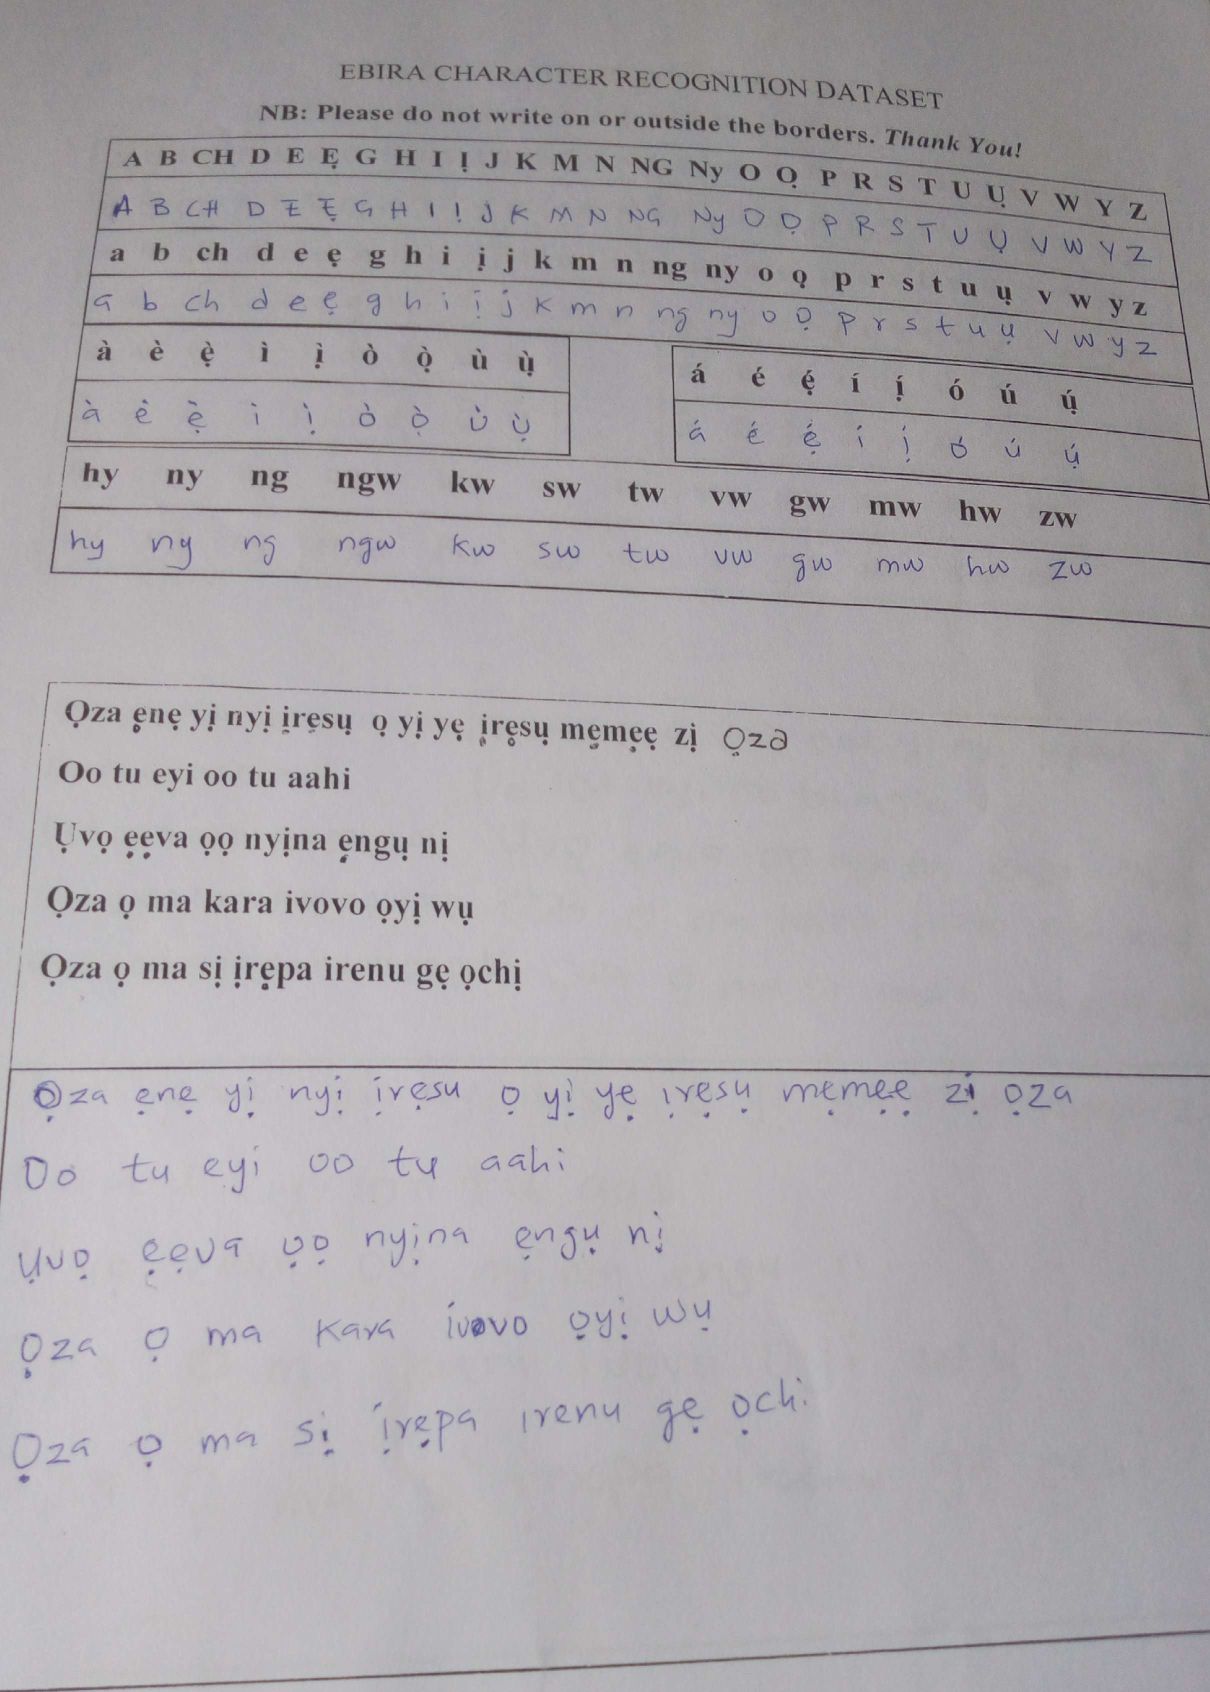 EBIRA CHARACTER RECOGNITION DATASET
NB: Please do not write on or outside the borders. Thank You!
A B CH D E Ẹ G H I Ị J K M N NG Ny O Ọ P R S T U Ụ V W Y Z
A B CH D E Ẹ G H I Ị J K M N NG Ny O Ọ P R S T U Ụ V W Y Z
a b ch d e ẹ g h i ị j k m n ng ny o ọ p r s t u ụ v w y z
a b ch d e ẹ g h i ị j k m n ng ny o ọ p r s t u ụ v w y z
à è ẹ̀ ì ị̀ ò ọ̀ ù ụ̀
á é ẹ́ í ị́ ó ú ụ́
à è ẹ̀ ì ị̀ ò ọ̀ ù ụ̀
á é ẹ́ í ị́ ó ú ụ́
hy ny ng ngw kw sw tw vw gw mw hw zw
hy ny ng ngw kw sw tw vw gw mw hw zw
Ọza ẹnẹ yị nyị ịrẹsụ ọ yị yẹ ịrẹsụ mẹmẹẹ zị ọza
Oo tu eyi oo tu aahi
Ụvọ ẹẹva ọọ nyịna ẹngụ nị
Ọza ọ ma kara ivovo ọyị wụ
Ọza ọ ma sị ịrẹpa irenu gẹ ọchị
Ọza ẹnẹ yị nyị ịrẹsu ọ yị yẹ ịrẹsụ mẹmẹẹ zị ọza
Oo tu eyi oo tu aahi
Ụvọ ẹẹva ọọ nyịna ẹngụ nị
Ọza ọ ma kara ivovo ọyị wụ
Ọza ọ ma sị ịrẹpa irenu gẹ ọchi